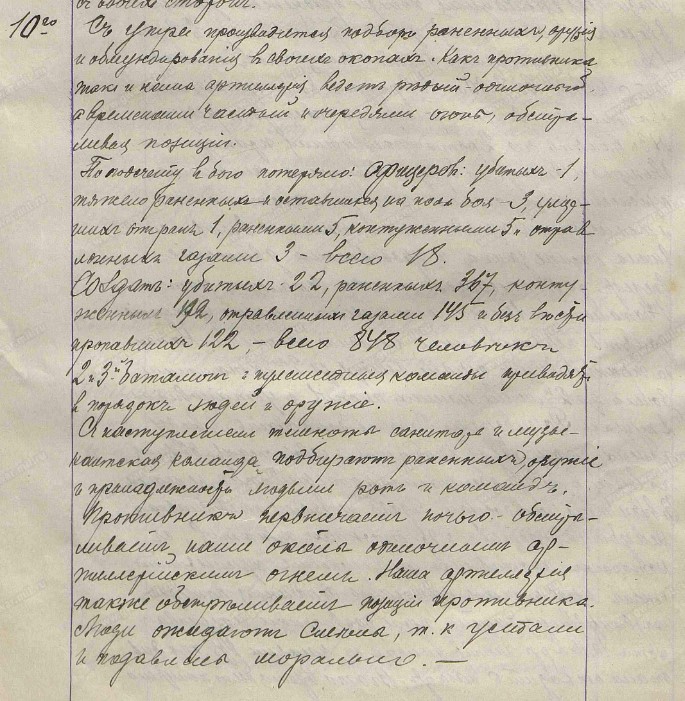 съ обѣихъ сторонъ.
10го
Съ утра производится подборъ раненныхъ, оружія
и обмундированія въ своихъ окопахъ. Какъ противника
такъ и наша артиллерія ведетъ рѣдкій одиночный
а временами частый и очередями огонь, обстрѣ-
ливая позиціи.
По подсчету въ бою потеряно: офицеровъ: убитыхъ - 1,
тяжело раненныхъ и оставшихся на полѣ боя - 3,
1, раненными 5, контуженными 5 и отрав
ленныхъ газами 3 - всего 18.
Солдатъ: убитыхъ 22, раненныхъ 367, конту-
женныхъ 192, отравленныхъ газами 145 и безъ вѣсти
пропавшихъ 122, - всего 848 человѣкъ
2 и 3й баталіоны и пулеметныя команды приводятъ
въ порядокъ людей и оружіе.
Съ наступленіемъ темноты санитары и музы-
кантская команда подбираютъ раненныхъ, оружіе
и принадлежность людьми ротъ и командъ.
Противникъ нервничаетъ ночью - обстрѣ-
ливаетъ наши окопы одиночнымъ ар-
тиллерійскимъ огнемъ. Наша артиллерія
также обстрѣливаетъ позиціи противника.
Люди ожидаютъ смѣны, т. к. устали
и подавлены морально. —